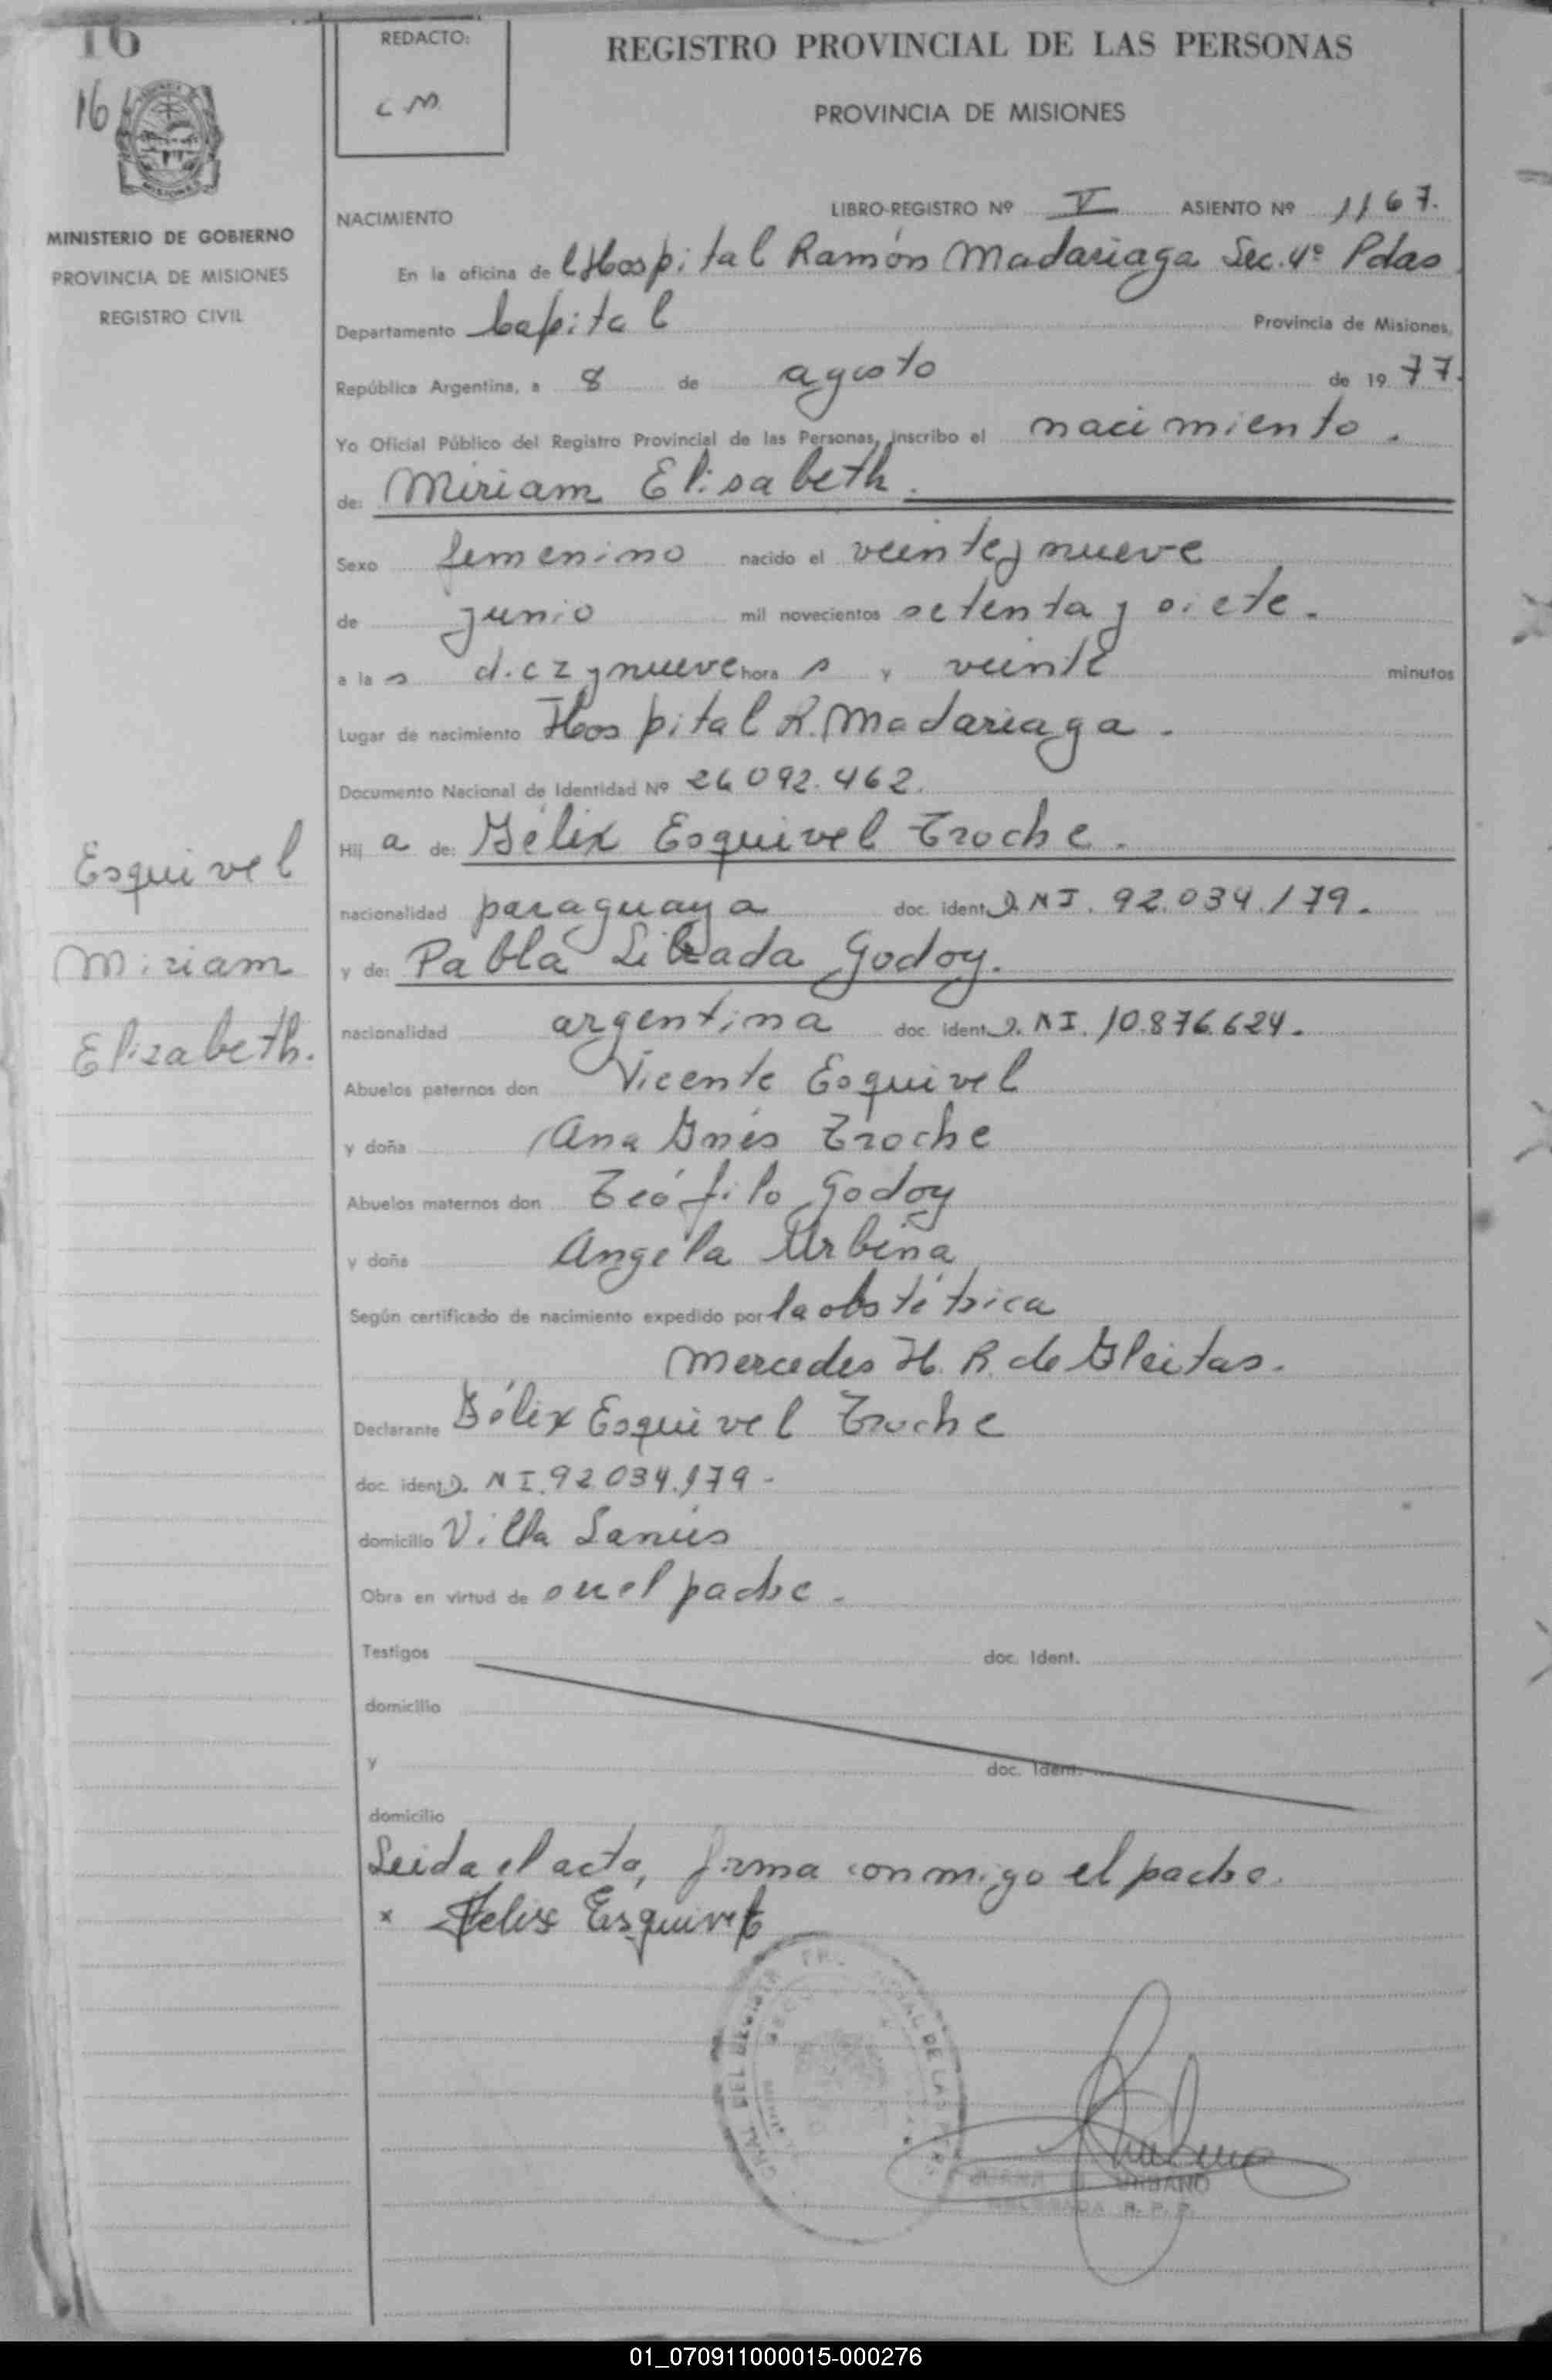 16
16
MISIONES
MINISTERIO DE GOBIERNO
PROVINCIA DE MISIONES
REGISTRO CIVIL
REDACTO:
C M
REGISTRO PROVINCIAL DE LAS PERSONAS
PROVINCIA DE MISIONES
NACIMIENTO
LIBRO-REGISTRO Nº V ASIENTO Nº 1167.
En la oficina de Hospital Ramón Madariaga Sec. 4º Pdas
Departamento Capital Provincia de Misiones,
República Argentina, a 8 de agosto de 1977.
Yo Oficial Público del Registro Provincial de las Personas, inscribo el nacimiento.
de: Miriam Elisabeth.
Sexo femenino nacido el veinte y nueve
de junio mil novecientos setenta y siete.
a la s diez y nueve hora s y veinte minutos
Lugar de nacimiento Hospital R. Madariaga.
Documento Nacional de Identidad Nº 26.092.462.
Hij a de: Félix Esquivel Troche.
nacionalidad paraguaya doc. ident. D.N.I. 92.034.179.
y de: Pabla Librada Godoy.
nacionalidad argentina doc. ident. D.N.I. 10.876.624.
Abuelos paternos don Vicente Esquivel
y doña Ana Inés Troche
Abuelos maternos don Teófilo Godoy
y doña Angela Urbina
Según certificado de nacimiento expedido por la obstétrica
Mercedes H. R. de Gleitas.
Declarante Félix Esquivel Troche
doc. ident. D.N.I. 92.034.179.-
domicilio Villa Lanús
Obra en virtud de ser el padre.
Testigos doc. Ident.
domicilio
y doc. Ident.
domicilio
Leida el acta, firma conmigo el padre.
x Felix Esquivel
Esquivel
Miriam
Elizabeth.
URBANO
R. P. P.
01_070911000015-000276